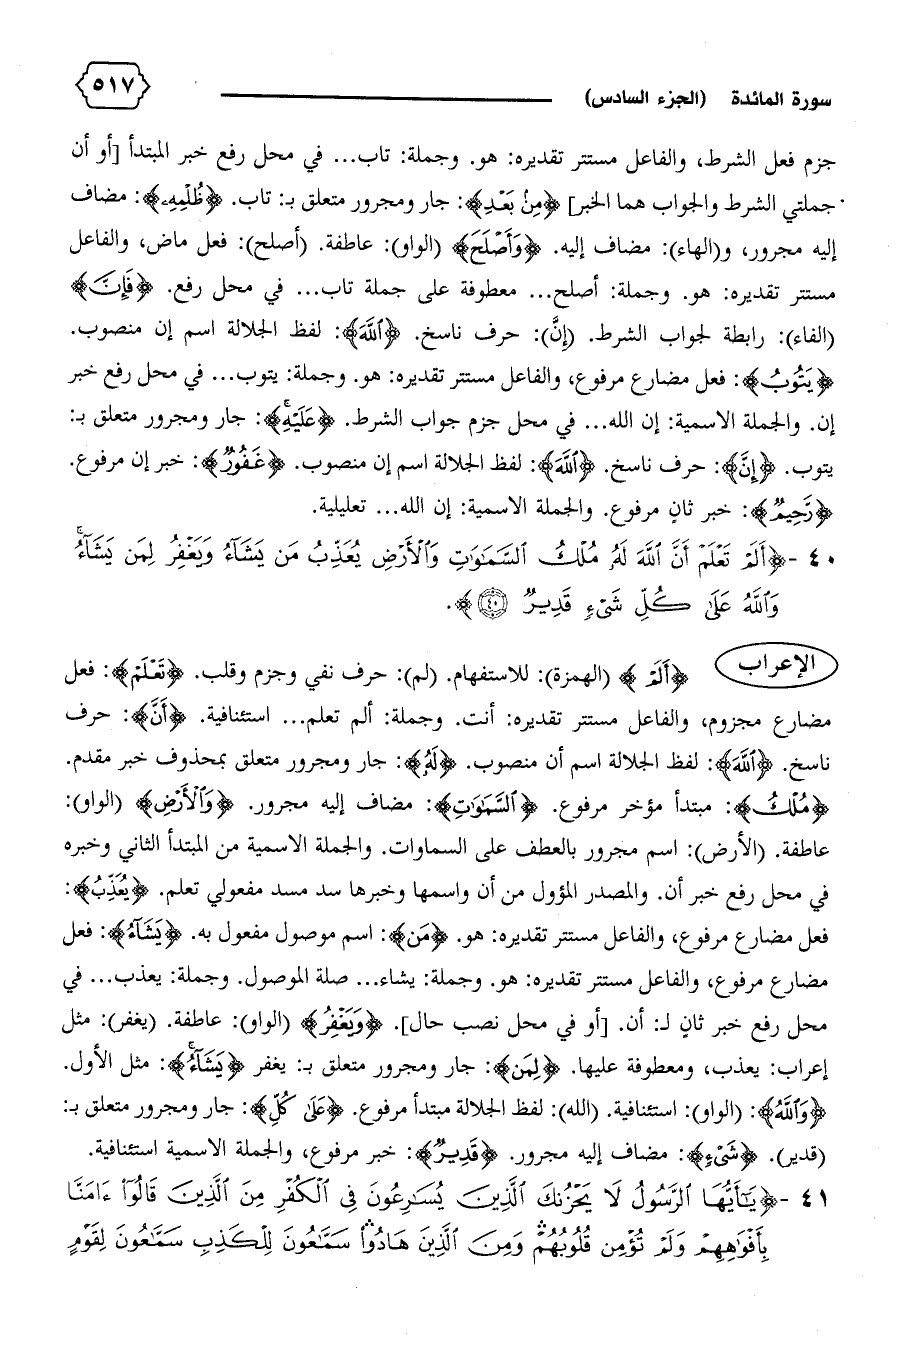 سورة المائدة (الجزء السادس) ٥١٧
جزم فعل الشرط، والفاعل مستتر تقديره: هو. وجملة: تاب... في محل رفع خبر المبتدأ [أو أن
جملتي الشرط والجواب هما الخبر] ﴿مِنۢ بَعْدِ﴾: جار ومجرور متعلق بـ: تاب. ﴿ظُلْمِهِۦ﴾: مضاف
إليه مجرور، و(الهاء): مضاف إليه. ﴿وَأَصْلَحَ﴾ (الواو): عاطفة. (أصلح): فعل ماض، والفاعل
مستتر تقديره: هو. وجملة: أصلح... معطوفة على جملة تاب... في محل رفع. ﴿فَإِنَّ﴾
(الفاء): رابطة لجواب الشرط. (إنَّ): حرف ناسخ. ﴿ٱللَّهَ﴾: لفظ الجلالة اسم إن منصوب.
﴿يَتُوبُ﴾: فعل مضارع مرفوع، والفاعل مستتر تقديره: هو. وجملة: يتوب... في محل رفع خبر
إن. والجملة الاسمية: إن الله... في محل جزم جواب الشرط. ﴿عَلَيْهِۚ﴾: جار ومجرور متعلق بـ:
يتوب. ﴿إِنَّ﴾: حرف ناسخ. ﴿ٱللَّهَ﴾: لفظ الجلالة اسم إن منصوب. ﴿غَفُورٌ﴾: خبر إن مرفوع.
﴿رَّحِيمٌ﴾: خبر ثانٍ مرفوع. والجملة الاسمية: إن الله... تعليلية.
٤٠ - ﴿أَلَمْ تَعْلَمْ أَنَّ ٱللَّهَ لَهُۥ مُلْكُ ٱلسَّمَٰوَٰتِ وَٱلْأَرْضِ يُعَذِّبُ مَن يَشَآءُ وَيَغْفِرُ لِمَن يَشَآءُۗ
وَٱللَّهُ عَلَىٰ كُلِّ شَىْءٍ قَدِيرٌ ٤٠﴾.
الإعراب ﴿أَلَمْ﴾ (الهمزة): للاستفهام. (لم): حرف نفي وجزم وقلب. ﴿تَعْلَمْ﴾: فعل
مضارع مجزوم، والفاعل مستتر تقديره: أنت. وجملة: ألم تعلم... استئنافية. ﴿أَنَّ﴾: حرف
ناسخ. ﴿ٱللَّهَ﴾: لفظ الجلالة اسم أن منصوب. ﴿لَهُۥ﴾: جار ومجرور متعلق بمحذوف خبر مقدم.
﴿مُلْكُ﴾: مبتدأ مؤخر مرفوع. ﴿ٱلسَّمَٰوَٰتِ﴾: مضاف إليه مجرور. ﴿وَٱلْأَرْضِ﴾ (الواو):
عاطفة. (الأرض): اسم مجرور بالعطف على السماوات. والجملة الاسمية من المبتدأ الثاني وخبره
في محل رفع خبر أن. والمصدر المؤول من أن واسمها وخبرها سد مسد مفعولي تعلم. ﴿يُعَذِّبُ﴾:
فعل مضارع مرفوع، والفاعل مستتر تقديره: هو. ﴿مَن﴾: اسم موصول مفعول به. ﴿يَشَآءُ﴾: فعل
مضارع مرفوع، والفاعل مستتر تقديره: هو. وجملة: يشاء... صلة الموصول. وجملة: يعذب... في
محل رفع خبر ثانٍ لـ: أن. [أو في محل نصب حال]. ﴿وَيَغْفِرُ﴾ (الواو): عاطفة. (يغفر): مثل
إعراب: يعذب، ومعطوفة عليها. ﴿لِمَن﴾: جار ومجرور متعلق بـ: يغفر ﴿يَشَآءُۗ﴾: مثل الأول.
﴿وَٱللَّهُ﴾: (الواو): استئنافية. (الله): لفظ الجلالة مبتدأ مرفوع. ﴿عَلَىٰ كُلِّ﴾: جار ومجرور متعلق بـ:
(قدير). ﴿شَىْءٍ﴾: مضاف إليه مجرور. ﴿قَدِيرٌ﴾: خبر مرفوع، والجملة الاسمية استئنافية.
٤١ - ﴿يَٰٓأَيُّهَا ٱلرَّسُولُ لَا يَحْزُنكَ ٱلَّذِينَ يُسَٰرِعُونَ فِى ٱلْكُفْرِ مِنَ ٱلَّذِينَ قَالُوٓا۟ ءَامَنَّا
بِأَفْوَٰهِهِمْ وَلَمْ تُؤْمِن قُلُوبُهُمْۛ وَمِنَ ٱلَّذِينَ هَادُوا۟ۛ سَمَّٰعُونَ لِلْكَذِبِ سَمَّٰعُونَ لِقَوْمٍ